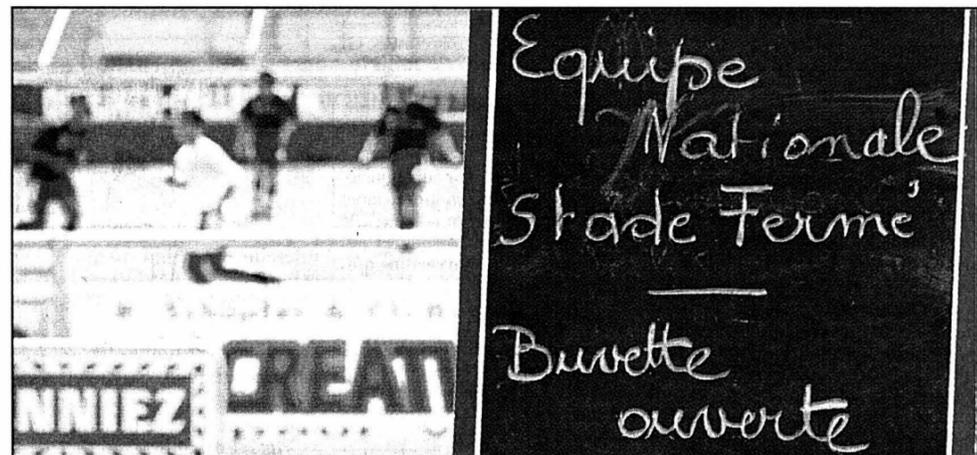 NNIEZ
CREATI
Equipe
Nationale
Stade Fermé
Buvette
ouverte